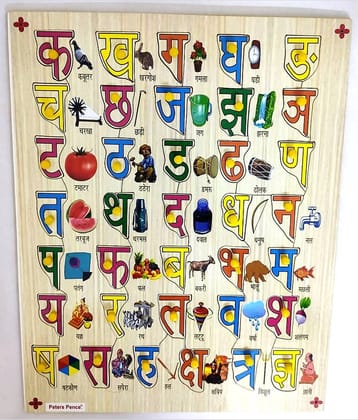 क ख ग घ ङ
कबूतर खरगोश गमला घड़ी
च छ ज झ ञ
चरखा छड़ी जग झरना
ट ठ ड ढ ण
टमाटर ठठेरा डमरू ढोलक
त थ द ध न
तरबूज थरमस दवात धनुष नल
प फ ब भ म
पतंग फल बकरी भालू मछली
य र ल व श
यज्ञ रथ लट्टू वर्षा शलगम
ष स ह क्ष त्र ज्ञ
षटकोण सपेरा हल क्षत्रिय त्रिशूल ज्ञानी
Peters Pence